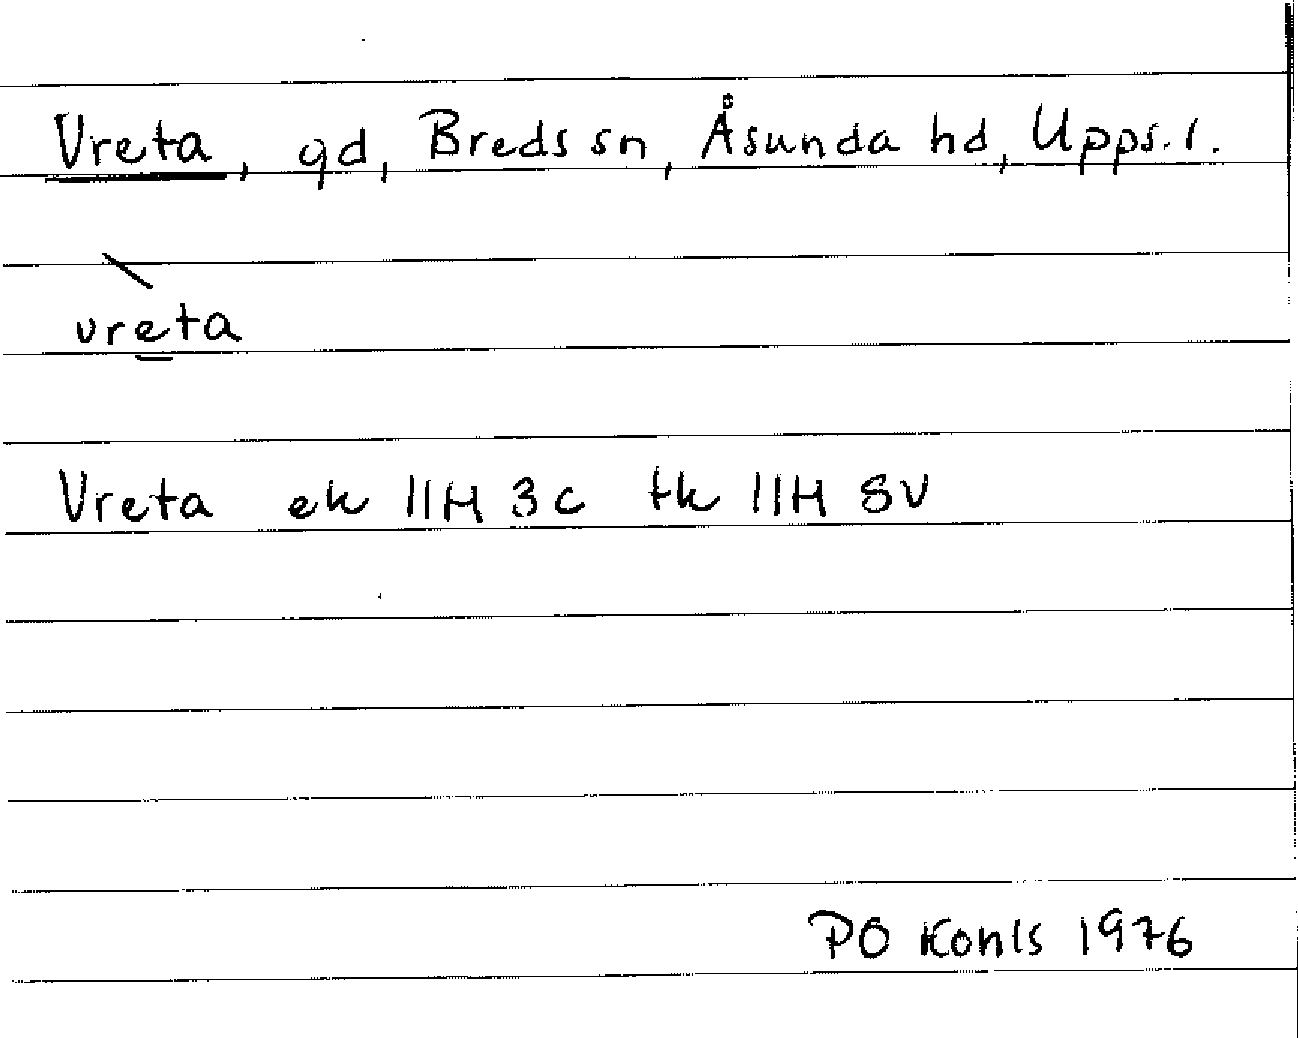 Vreta, gd, Breds sn, Åsunda hd, Upps. l.
vreta
Vreta ek 11H 3c tk 11H SV
PO Konls 1976